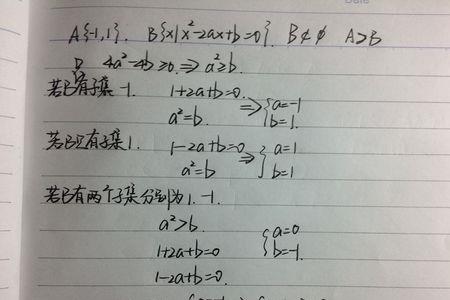 A{-1,1}. B{x|x²-2ax+b=0}. B≠ϕ A⊃B
4a²-4b≥0 ⇒ a²≥b.
若B有子集-1. 1+2a+b=0. a²=b. ⇒ {a=-1 b=1.
若B只有子集1. 1-2a+b=0 a²=b ⇒ {a=1 b=1
若B有两个子集分别为1.-1.
a²>b.
1+2a+b=0 {a=0 b=-1.
1-2a+b=0.